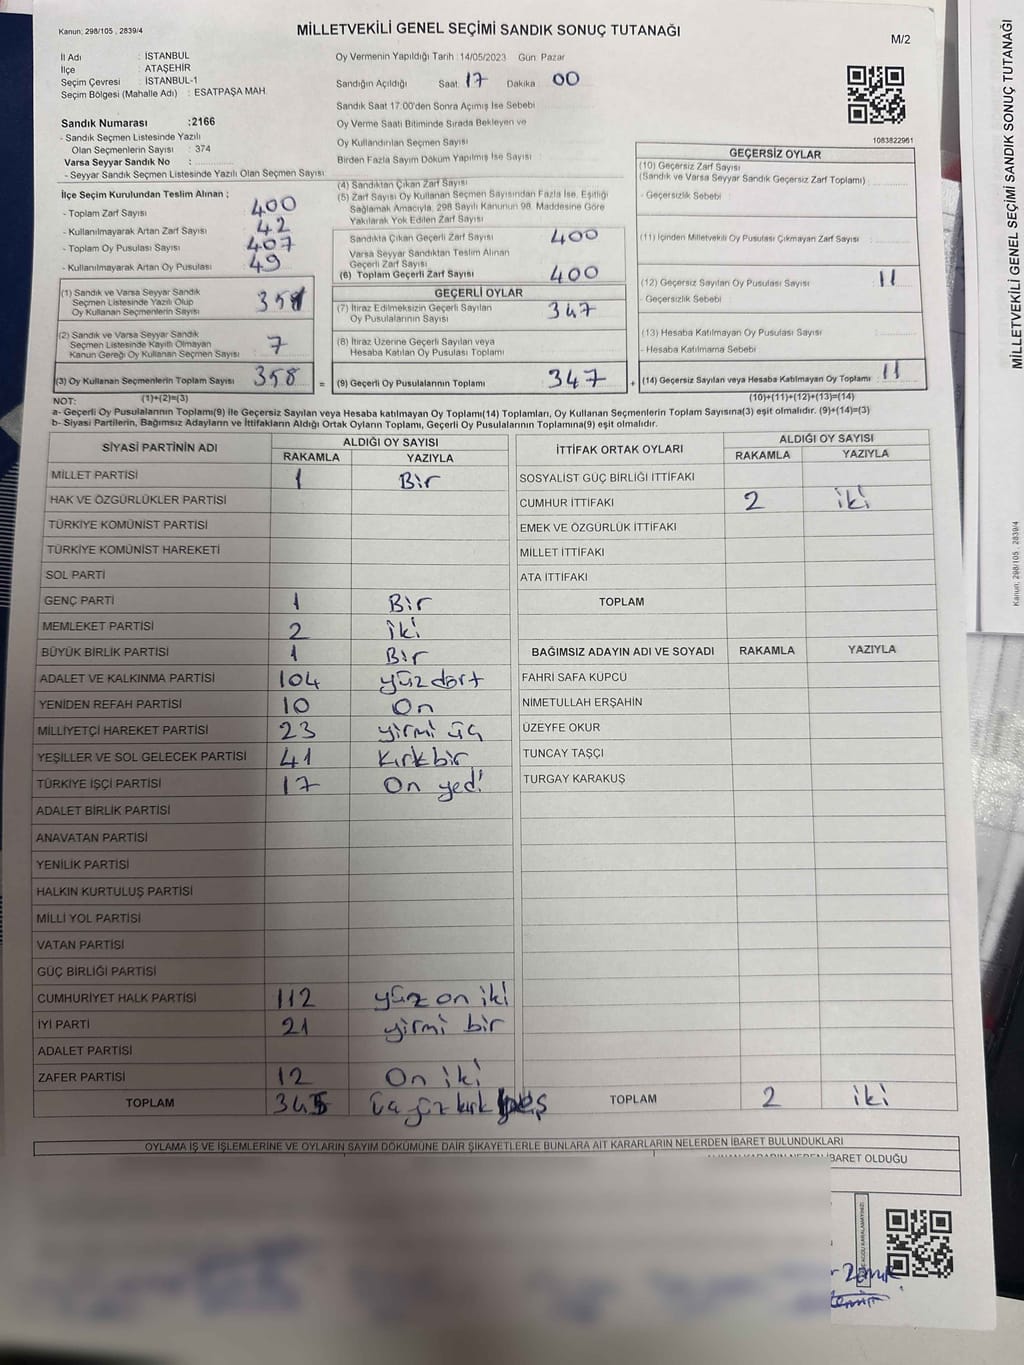 Kanun; 298/105 , 2839/4
MİLLETVEKİLİ GENEL SEÇİMİ SANDIK SONUÇ TUTANAĞI
M/2
İl Adı : İSTANBUL
İlçe : ATAŞEHİR
Seçim Çevresi : İSTANBUL-1
Seçim Bölgesi (Mahalle Adı) : ESATPAŞA MAH.
Sandık Numarası :2166
- Sandık Seçmen Listesinde Yazılı
Olan Seçmenlerin Sayısı : 374
Varsa Seyyar Sandık No :
- Seyyar Sandık Seçmen Listesinde Yazılı Olan Seçmen Sayısı
Oy Vermenin Yapıldığı Tarih :14/05/2023 Gün Pazar
Sandığın Açıldığı Saat: 17 Dakika 00
Sandık Saat 17:00'den Sonra Açımış İse Sebebi
Oy Verme Saati Bitiminde Sırada Bekleyen ve
Oy Kullandırılan Seçmen Sayısı
Birden Fazla Sayım Döküm Yapılmış İse Sayısı :
1083822961
İlçe Seçim Kurulundan Teslim Alınan ;
- Toplam Zarf Sayısı 400
- Kullanılmayarak Artan Zarf Sayısı 42
- Toplam Oy Pusulası Sayısı 407
- Kullanılmayarak Artan Oy Pusulası 49
(1) Sandık ve Varsa Seyyar Sandık
Seçmen Listesinde Yazılı Olup
Oy Kullanan Seçmenlerin Sayısı 351
(2) Sandık ve Varsa Seyyar Sandık
Seçmen Listesinde Kayıtlı Olmayan
Kanun Gereği Oy Kullanan Seçmen Sayısı 7
(3) Oy Kullanan Seçmenlerin Toplam Sayısı 358 =
(1)+(2)=(3)
(4) Sandıktan Çıkan Zarf Sayısı
(5) Zarf Sayısı Oy Kullanan Seçmen Sayısından Fazla İse, Eşitliği
Sağlamak Amacıyla, 298 Sayılı Kanunun 98. Maddesine Göre
Yakılarak Yok Edilen Zarf Sayısı
Sandıkta Çıkan Geçerli Zarf Sayısı 400
Varsa Seyyar Sandıktan Teslim Alınan
Geçerli Zarf Sayısı
(6) Toplam Geçerli Zarf Sayısı 400
GEÇERLİ OYLAR
(7) İtiraz Edilmeksizin Geçerli Sayılan
Oy Pusulalarının Sayısı 347
(8) İtiraz Üzerine Geçerli Sayılan veya
Hesaba Katılan Oy Pusulası Toplamı
(9) Geçerli Oy Pusulalarının Toplamı 347 +
GEÇERSİZ OYLAR
(10) Geçersiz Zarf Sayısı
(Sandık ve Varsa Seyyar Sandık Geçersiz Zarf Toplamı) :
- Geçersizlik Sebebi :
(11) İçinden Milletvekili Oy Pusulası Çıkmayan Zarf Sayısı :
(12) Geçersiz Sayılan Oy Pusulası Sayısı : 11
- Geçersizlik Sebebi :
(13) Hesaba Katılmayan Oy Pusulası Sayısı :
- Hesaba Katılmama Sebebi
(14) Geçersiz Sayılan veya Hesaba Katılmayan Oy Toplamı : 11
(10)+(11)+(12)+(13)=(14)
NOT:
a- Geçerli Oy Pusulalarının Toplamı(9) ile Geçersiz Sayılan veya Hesaba katılmayan Oy Toplamı(14) Toplamları, Oy Kullanan Seçmenlerin Toplam Sayısına(3) eşit olmalıdır. (9)+(14)=(3)
b- Siyasi Partilerin, Bağımsız Adayların ve İttifakların Aldığı Ortak Oyların Toplamı, Geçerli Oy Pusulalarının Toplamına(9) eşit olmalıdır.
SİYASİ PARTİNİN ADI ALDIĞI OY SAYISI
RAKAMLA YAZIYLA
MİLLET PARTİSİ 1 Bir
HAK VE ÖZGÜRLÜKLER PARTİSİ
TÜRKİYE KOMÜNİST PARTİSİ
TÜRKİYE KOMÜNİST HAREKETİ
SOL PARTİ
GENÇ PARTİ 1 Bir
MEMLEKET PARTİSİ 2 iki
BÜYÜK BİRLİK PARTİSİ 1 Bir
ADALET VE KALKINMA PARTİSİ 104 yüz dört
YENİDEN REFAH PARTİSİ 10 On
MİLLİYETÇİ HAREKET PARTİSİ 23 yirmi üç
YEŞİLLER VE SOL GELECEK PARTİSİ 41 Kırk bir
TÜRKİYE İŞÇİ PARTİSİ 17 On yedi
ADALET BİRLİK PARTİSİ
ANAVATAN PARTİSİ
YENİLİK PARTİSİ
HALKIN KURTULUŞ PARTİSİ
MİLLİ YOL PARTİSİ
VATAN PARTİSİ
GÜÇ BİRLİĞİ PARTİSİ
CUMHURİYET HALK PARTİSİ 112 yüz on iki
İYİ PARTİ 21 yirmi bir
ADALET PARTİSİ
ZAFER PARTİSİ 12 On iki
TOPLAM 345 üç yüz kırk beş
İTTİFAK ORTAK OYLARI ALDIĞI OY SAYISI
RAKAMLA YAZIYLA
SOSYALİST GÜÇ BİRLİĞİ İTTİFAKI
CUMHUR İTTİFAKI 2 iki
EMEK VE ÖZGÜRLÜK İTTİFAKI
MİLLET İTTİFAKI
ATA İTTİFAKI
TOPLAM
BAĞIMSIZ ADAYIN ADI VE SOYADI RAKAMLA YAZIYLA
FAHRİ SAFA KÜPCÜ
NİMETULLAH ERŞAHİN
ÜZEYFE OKUR
TUNCAY TAŞÇI
TURGAY KARAKUŞ
TOPLAM 2 iki
OYLAMA İŞ VE İŞLEMLERİNE VE OYLARIN SAYIM DÖKÜMÜNE DAİR ŞİKAYETLERLE BUNLARA AİT KARARLARIN NELERDEN İBARET BULUNDUKLARI
İBARET OLDUĞU
MİLLETVEKİLİ GENEL SEÇİMİ SANDIK SONUÇ TUTANAĞI
Kanun; 298/105 , 2839/4